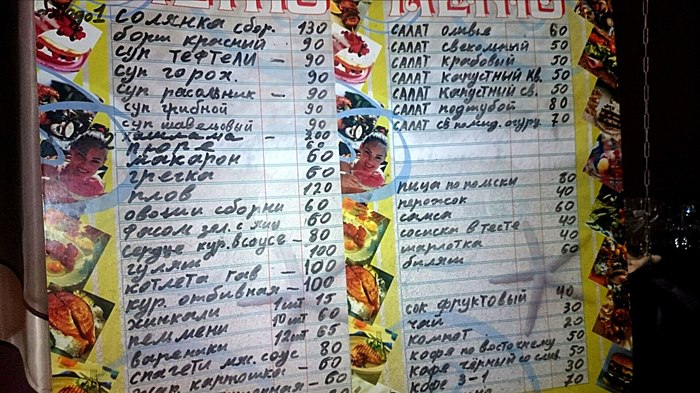 МЕНЮ
СОЛЯНКА сбор. 130
борщ красный 90
суп ТЕФТЕЛИ - 90
СУП ГОРОХ. 90
суп расальник - 90
СУП ГРИБНОЙ 90
суп щавельовый 90
200
ПЮРЕ 60
МАКАРОН 60
ГРЕЧКА 60
ПЛОВ 120
ОВОЩИ СБОРНИ 60
ФАСОЛ ЗЕЛ. С ЯЙЦ 60
сердце кур. в соусе - 80
ГУЛЯШ 100
КОТЛЕТА ГАВ - 100
КУР. ОТБИВНАЯ - 100
ХИНКАЛИ 1шт 15
ПЕЛМЕНИ 10шт 60
ВАРЕНИКИ 12шт 65
СПАГЕТИ МЯ. СОУС 80
ЖАР КАРТОШКА - 60
60
МЕНЮ
САЛАТ ОЛИВЬЕ 60
САЛАТ СВЕКОЛЬНЫЙ 50
САЛАТ КРАБОВЫЙ 50
САЛАТ КАПУСТНЫЙ КВ. 50
САЛАТ КАПУСТНЫЙ СВ. 50
САЛАТ ПОДШУБОЙ 80
САЛАТ СВ ПОМИД. ОГУРУ. 70
ПИЦА ПО ПОЛЬСКИ 80
ПЕРОЖОК 40
САМСА 60
СОСИСКА В ТЕСТЕ 40
ШАРЛОТКА 40
БИЛЯШ 60
СОК ФРУКТОВЫЙ 40
ЧАЙ 30
КОМПОТ 20
КОФЕ ПО ВОСТОЧНОМУ 50
КОФЕ ЧЁРНЫЙ СО СЛИЦ 50
КОФЕ 3-1 30
70